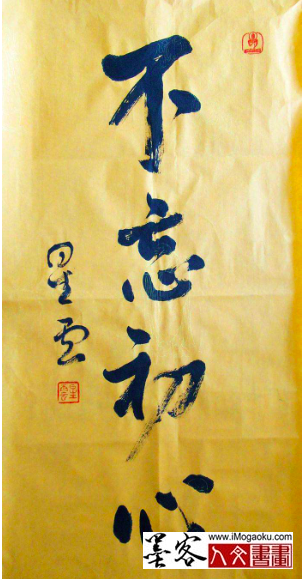 不忘初心
星雲
www.iMogaoku.com
墨客
人文書畫